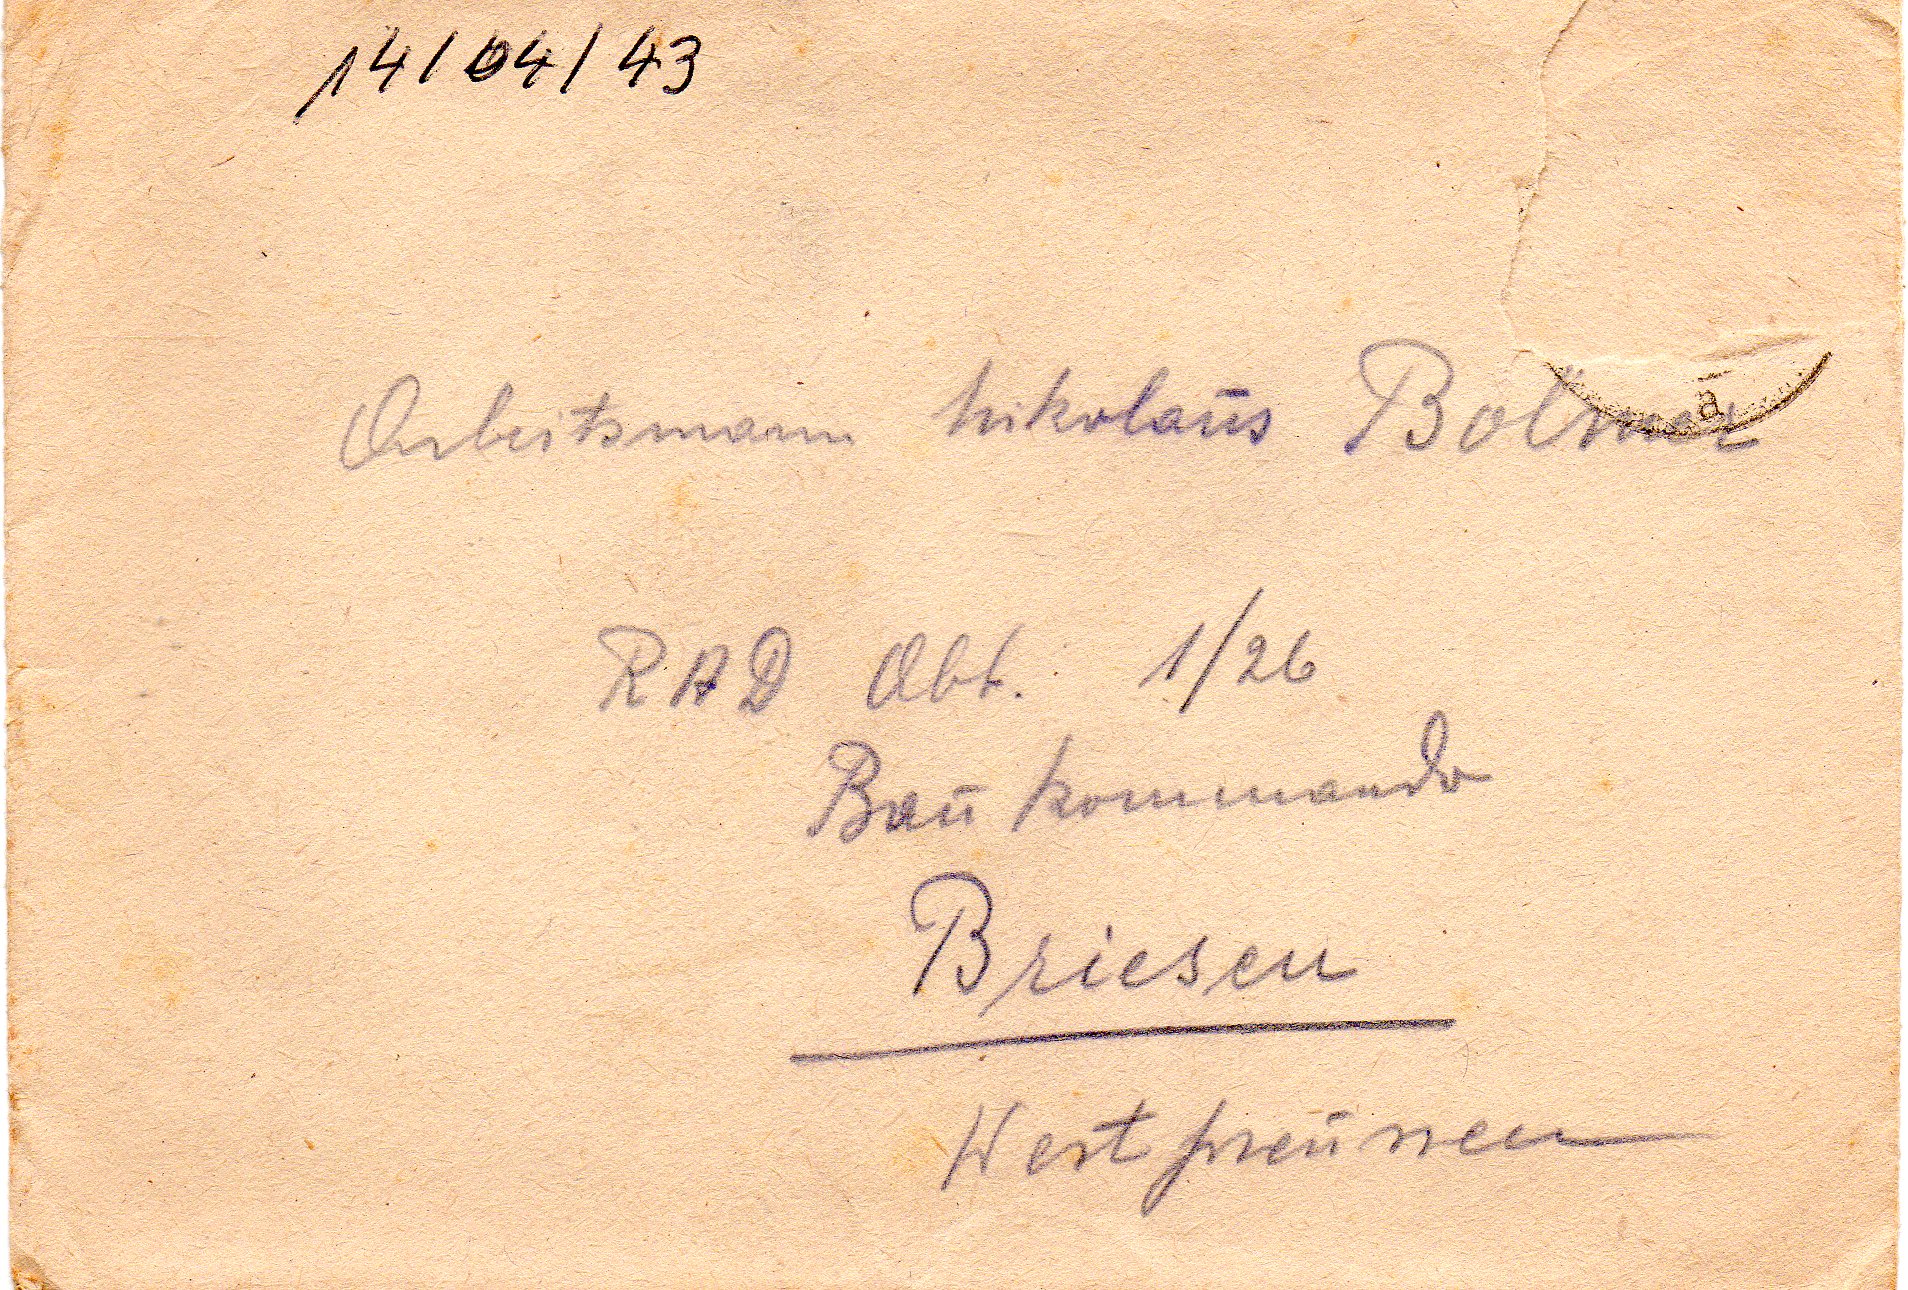 14/04/43
Arbeitsmann Nikolaus
RAD Abt. 1/26
Baukommando
Briesen
Westpreussen
a